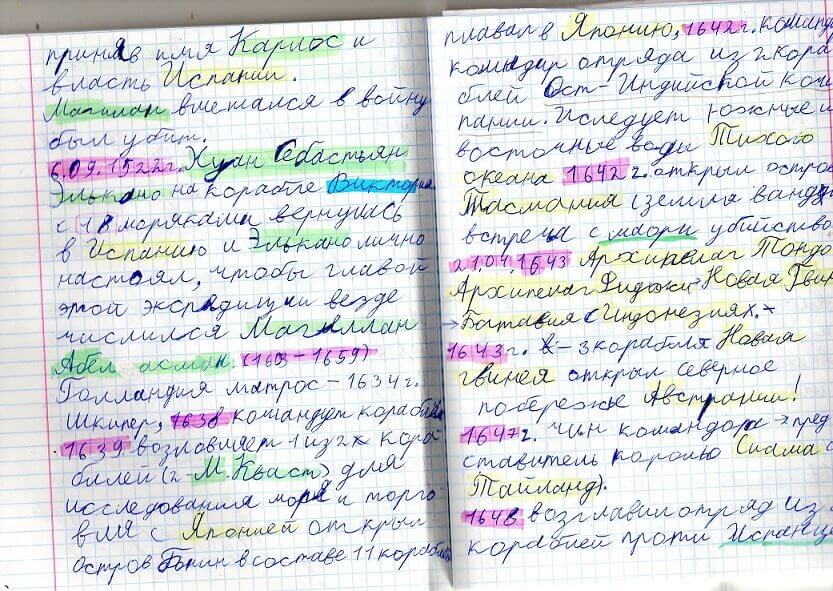 приняв имя Карлос и
власть Испании.
Магилан вмешался в войну
был убит.
6.09.1522г. Хуан Себастьян
Элькано на корабле Виктория
с 18 моряками вернулась
в Испанию и Элькано лично
настоял, чтобы главой
этой экспедиции везде
числился Магиллан
Абел асман. (1603-1659)
Голландия матрос - 1634г.
Шкипер, 1638 командует кораблём
1639 возглавляет 1 из 2х кора
блей (2-М.Кваст) для
исследования моря и торго
вли с Японией открыл
остров Бонин в составе 11 корабл
плавал в Японию, 1642г. команд
командир отряда из 2 кора
блей Ост-Индийской ком
пании. Иследует южные и
восточные воды Тихого
океана 1642 г. открыл остро
Тасмания (земля ванд
встреча с маори убийство
21.01.1643 Архипелаг Тонго
Архипелаг Фиджи Новая Гви
→ Батавия (Индонезия).
1643г. - 3 корабля Новая
гвинея открыл северное
побережье Австралии!
1647г. чин командора → пред
ставитель королю Сиама (
Тайланд).
1648 возглавил отряд из
кораблей проти Испанц